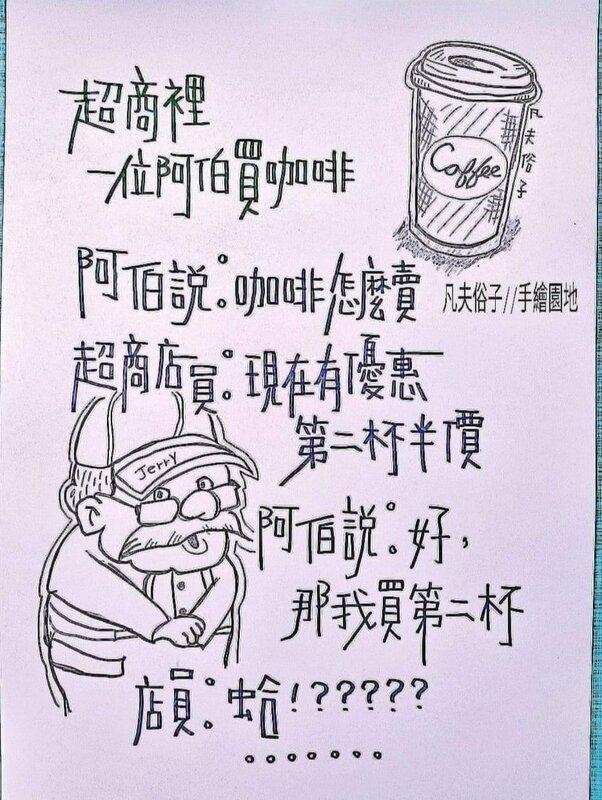 超商裡
一位阿伯買咖啡
Coffee
凡夫俗子
阿伯說：咖啡怎麼賣
凡夫俗子//手繪園地
超商店員：現在有優惠
第二杯半價
Jerry
阿伯說：好，
那我買第二杯
店員：蛤！?????
.......